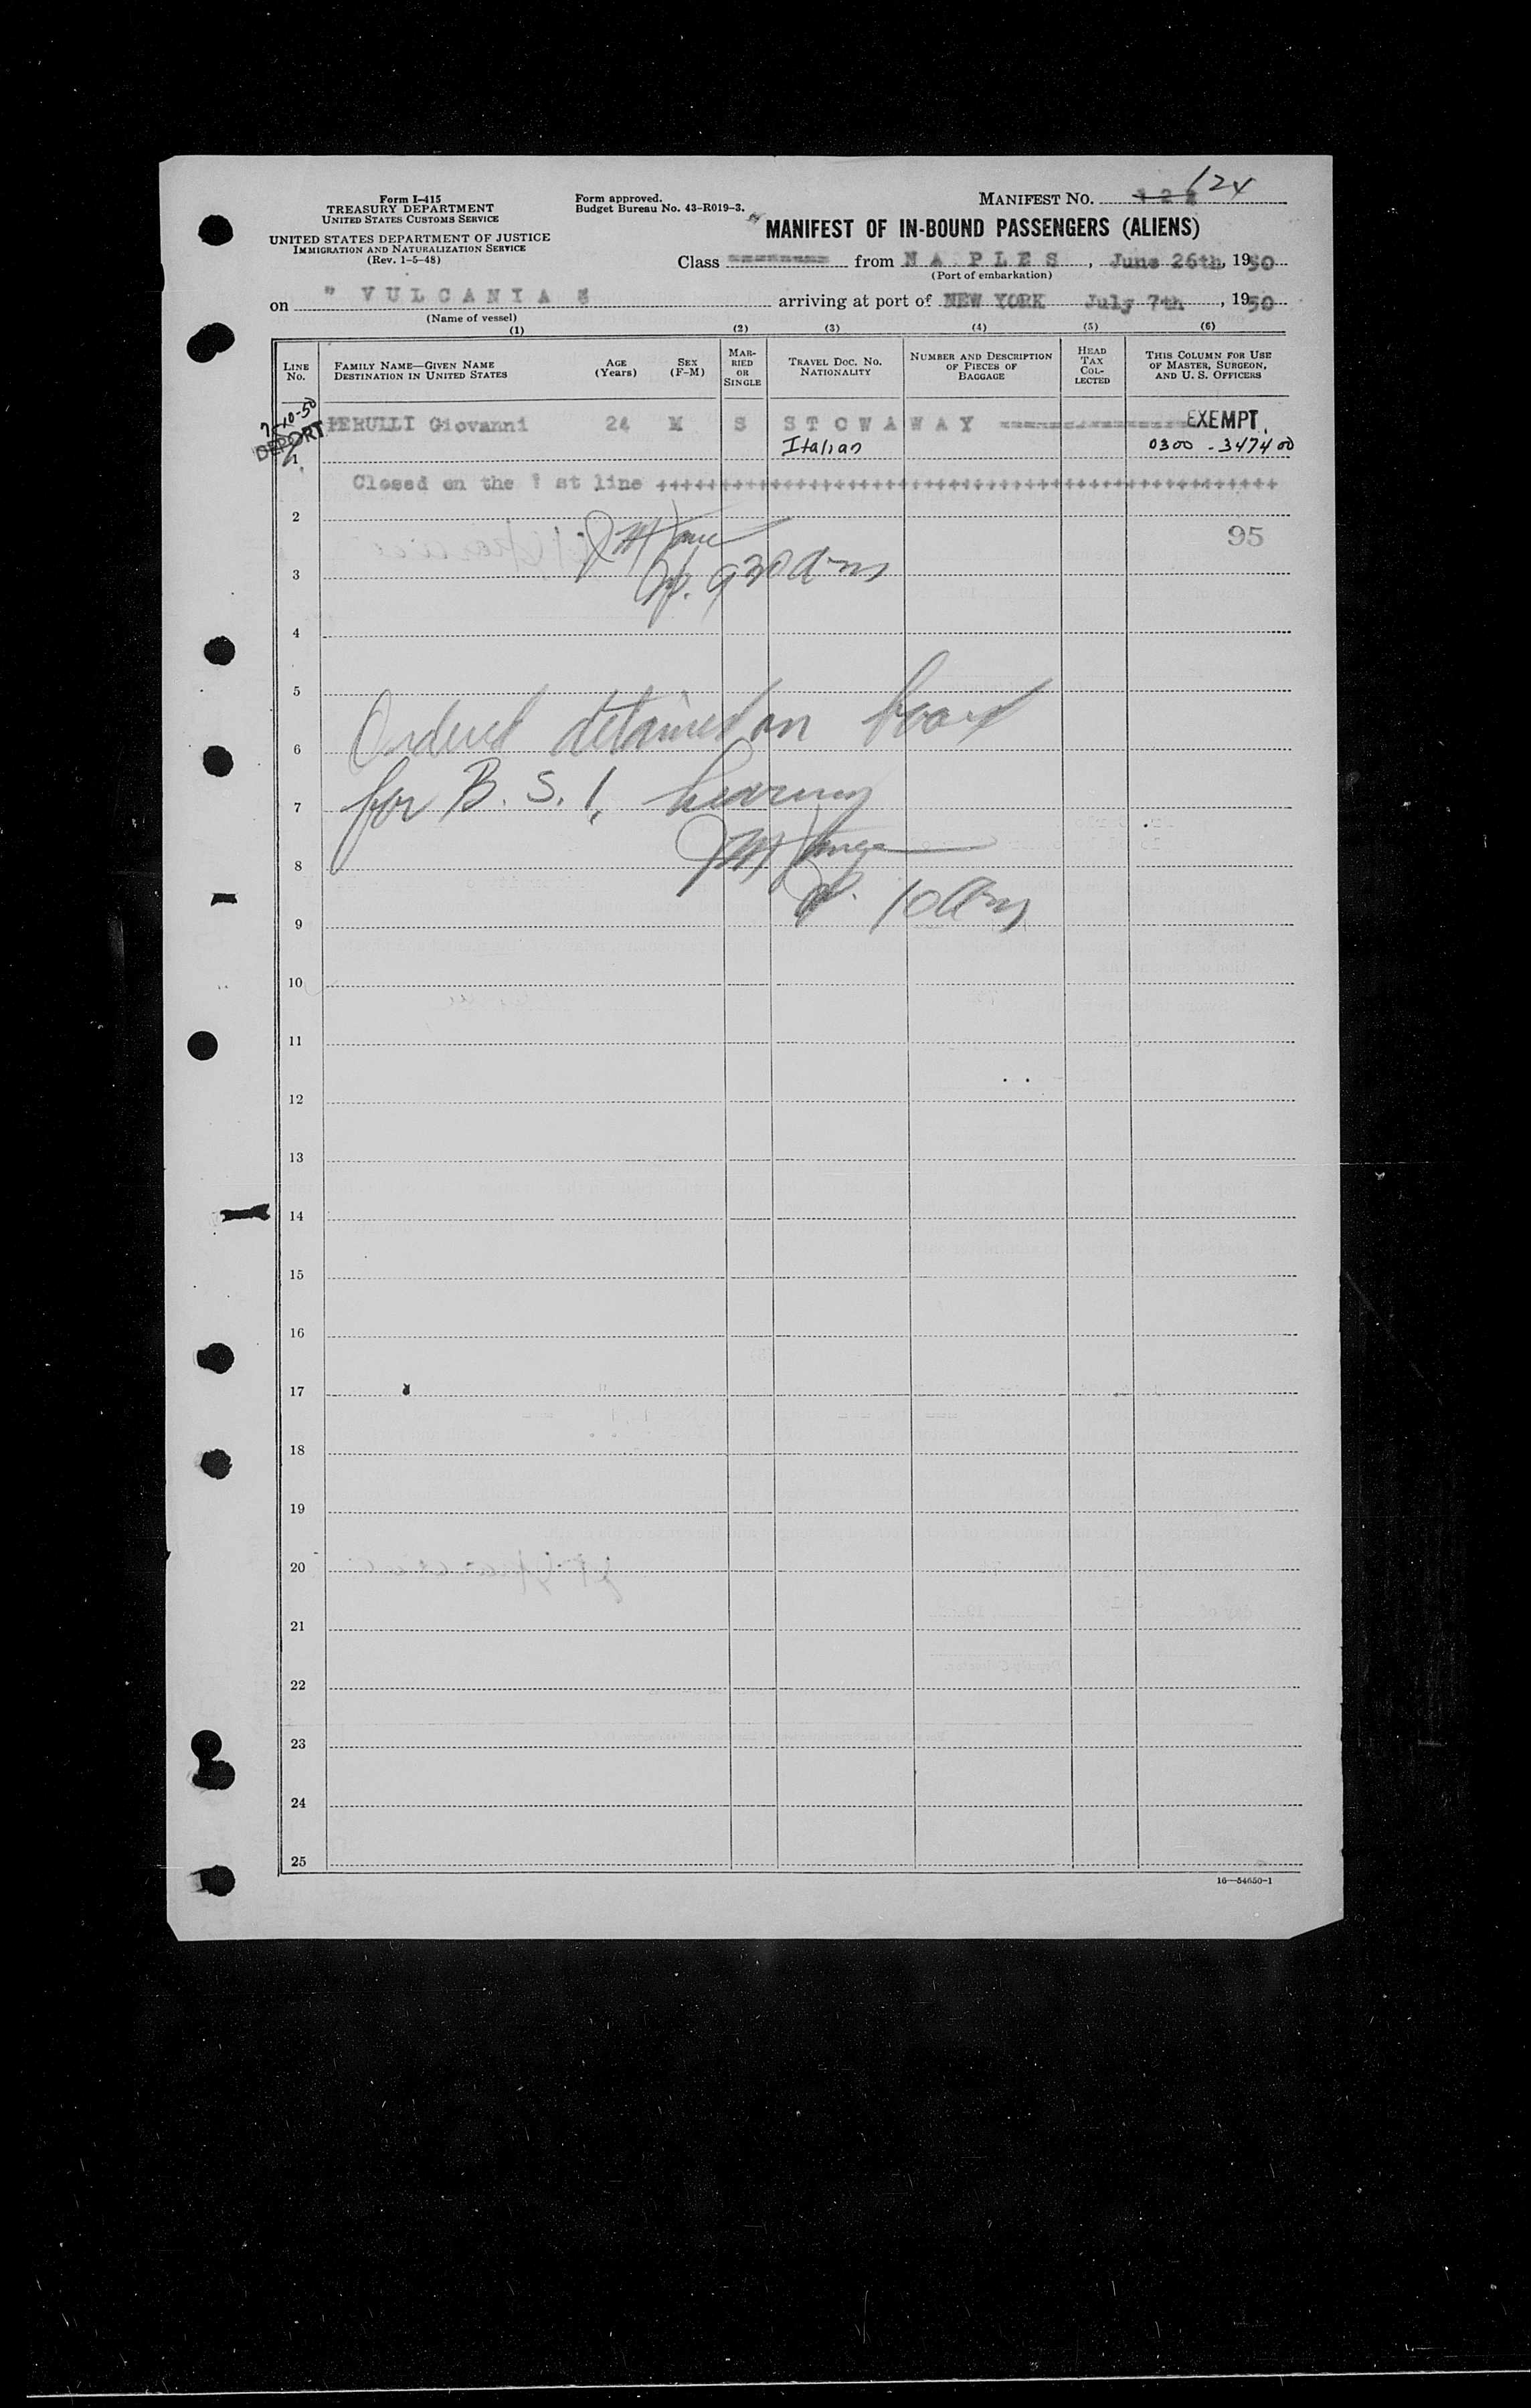 Form I-415
TREASURY DEPARTMENT
UNITED STATES CUSTOMS SERVICE
UNITED STATES DEPARTMENT OF JUSTICE
IMMIGRATION AND NATURALIZATION SERVICE
(Rev. 1-5-48)
Form approved.
Budget Bureau No. 43-R019-3.
MANIFEST NO. 124
MANIFEST OF IN-BOUND PASSENGERS (ALIENS)
Class ======== from N A P L E S , June 26th, 1950
(Port of embarkation)
on " V U L C A N I A " arriving at port of NEW YORK July 7th , 1950
(Name of vessel)
(1) (2) (3) (4) (5) (6)
LINE No.
FAMILY NAME—GIVEN NAME
DESTINATION IN UNITED STATES
AGE (Years)
SEX (F-M)
MARRIED OR SINGLE
TRAVEL DOC. NO.
NATIONALITY
NUMBER AND DESCRIPTION OF PIECES OF BAGGAGE
HEAD TAX COLLECTED
THIS COLUMN FOR USE OF MASTER, SURGEON, AND U. S. OFFICERS
7-10-50
DEPORT
PERULLI Giovanni 24 M S S T O W A W A Y EXEMPT
1 Italian 0300 - 347400
Closed on the 1 st line
2
95
3 930 am
4
5
Ordered detained on board
6
for B. S. I. hearing
7
8
10 am
9
10
11
12
13
14
15
16
17
18
19
20
21
22
23
24
25
16—54650-1